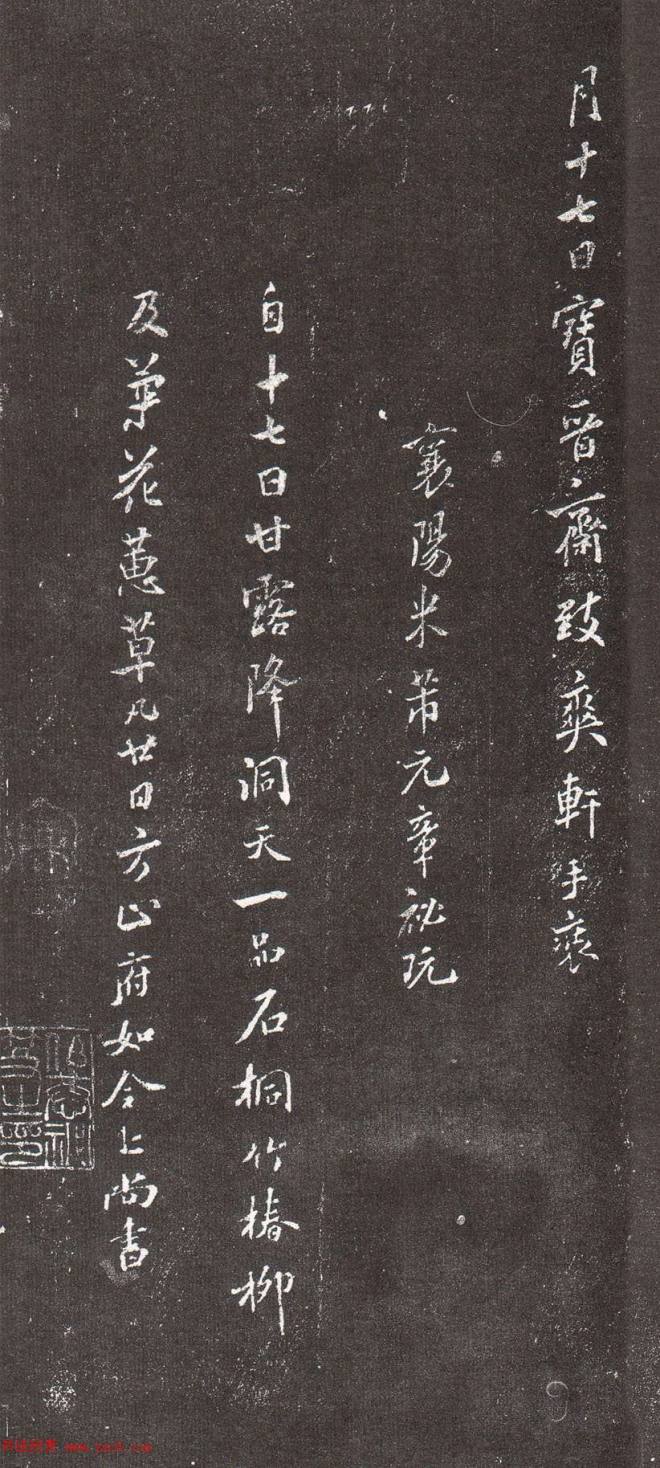 月十七日寶晉齋致爽軒手裝
襄陽米芾元章祕玩
自十七日甘露降洞天一品石桐竹椿柳
及草花蕙草凡廿日方止府如令上尚書